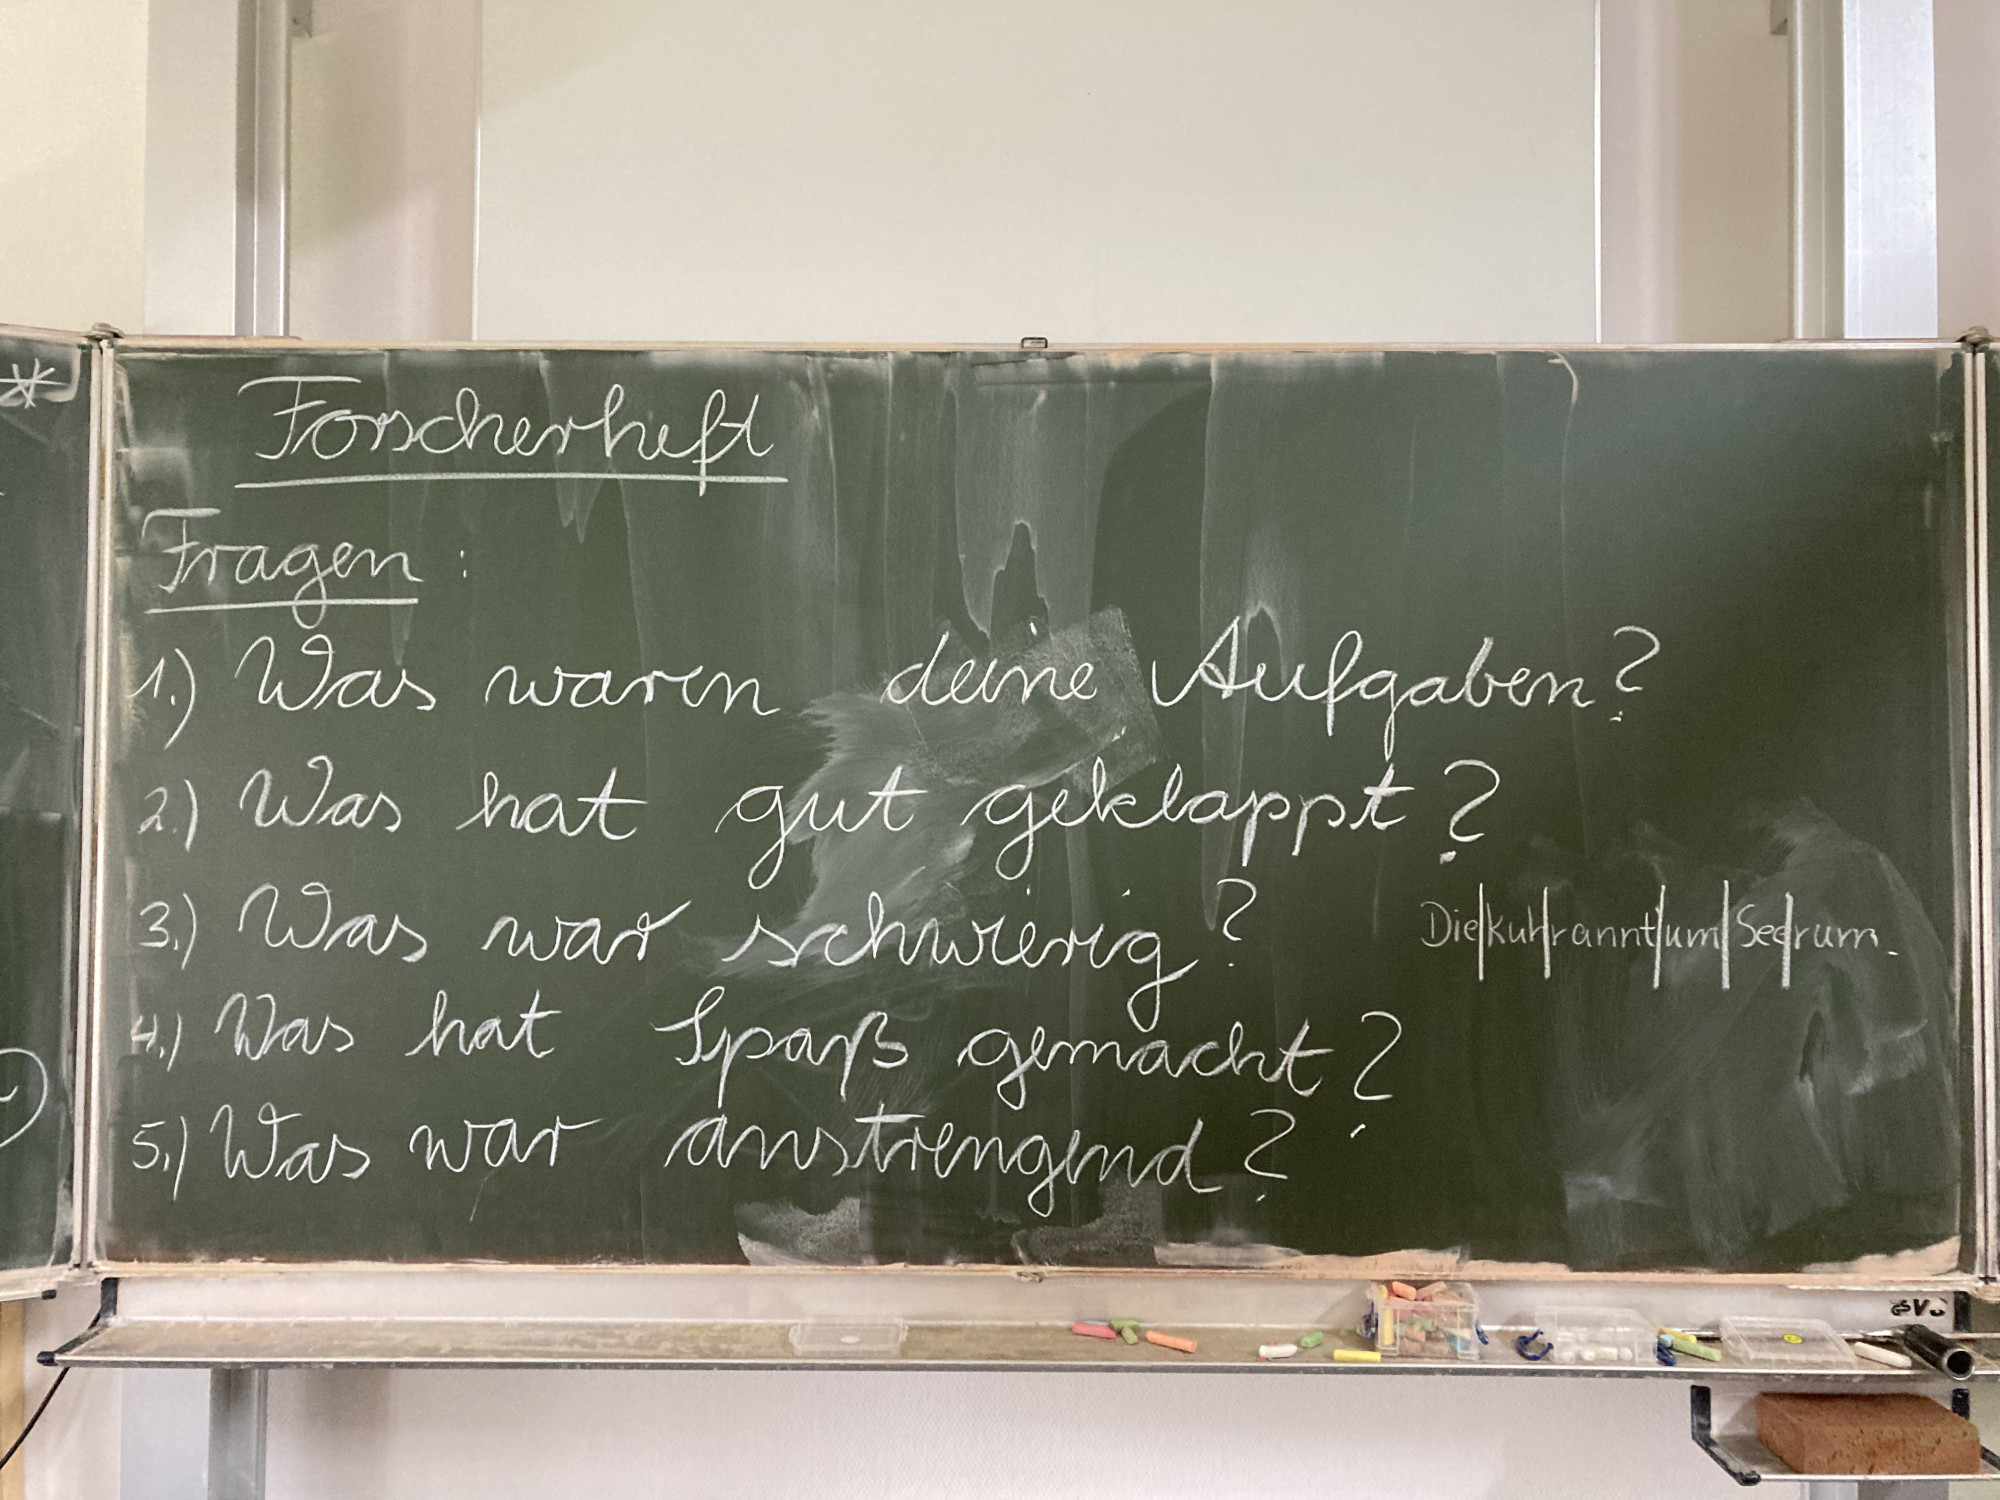 Forscherheft
Fragen :
1.) Was waren deine Aufgaben?
2.) Was hat gut geklappt?
3.) Was war schwierig?
Die|kuh|rannt|um|See|rum.
4.) Was hat Spaß gemacht?
5.) Was war anstrengend?